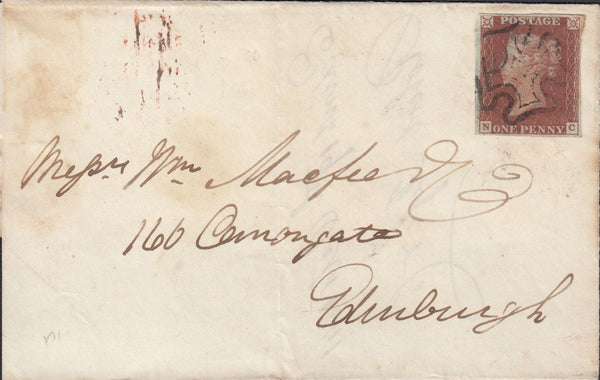 POSTAGE
N ONE PENNY C
Messrs Wm Macfie & Co
160 Canongate
Edinburgh